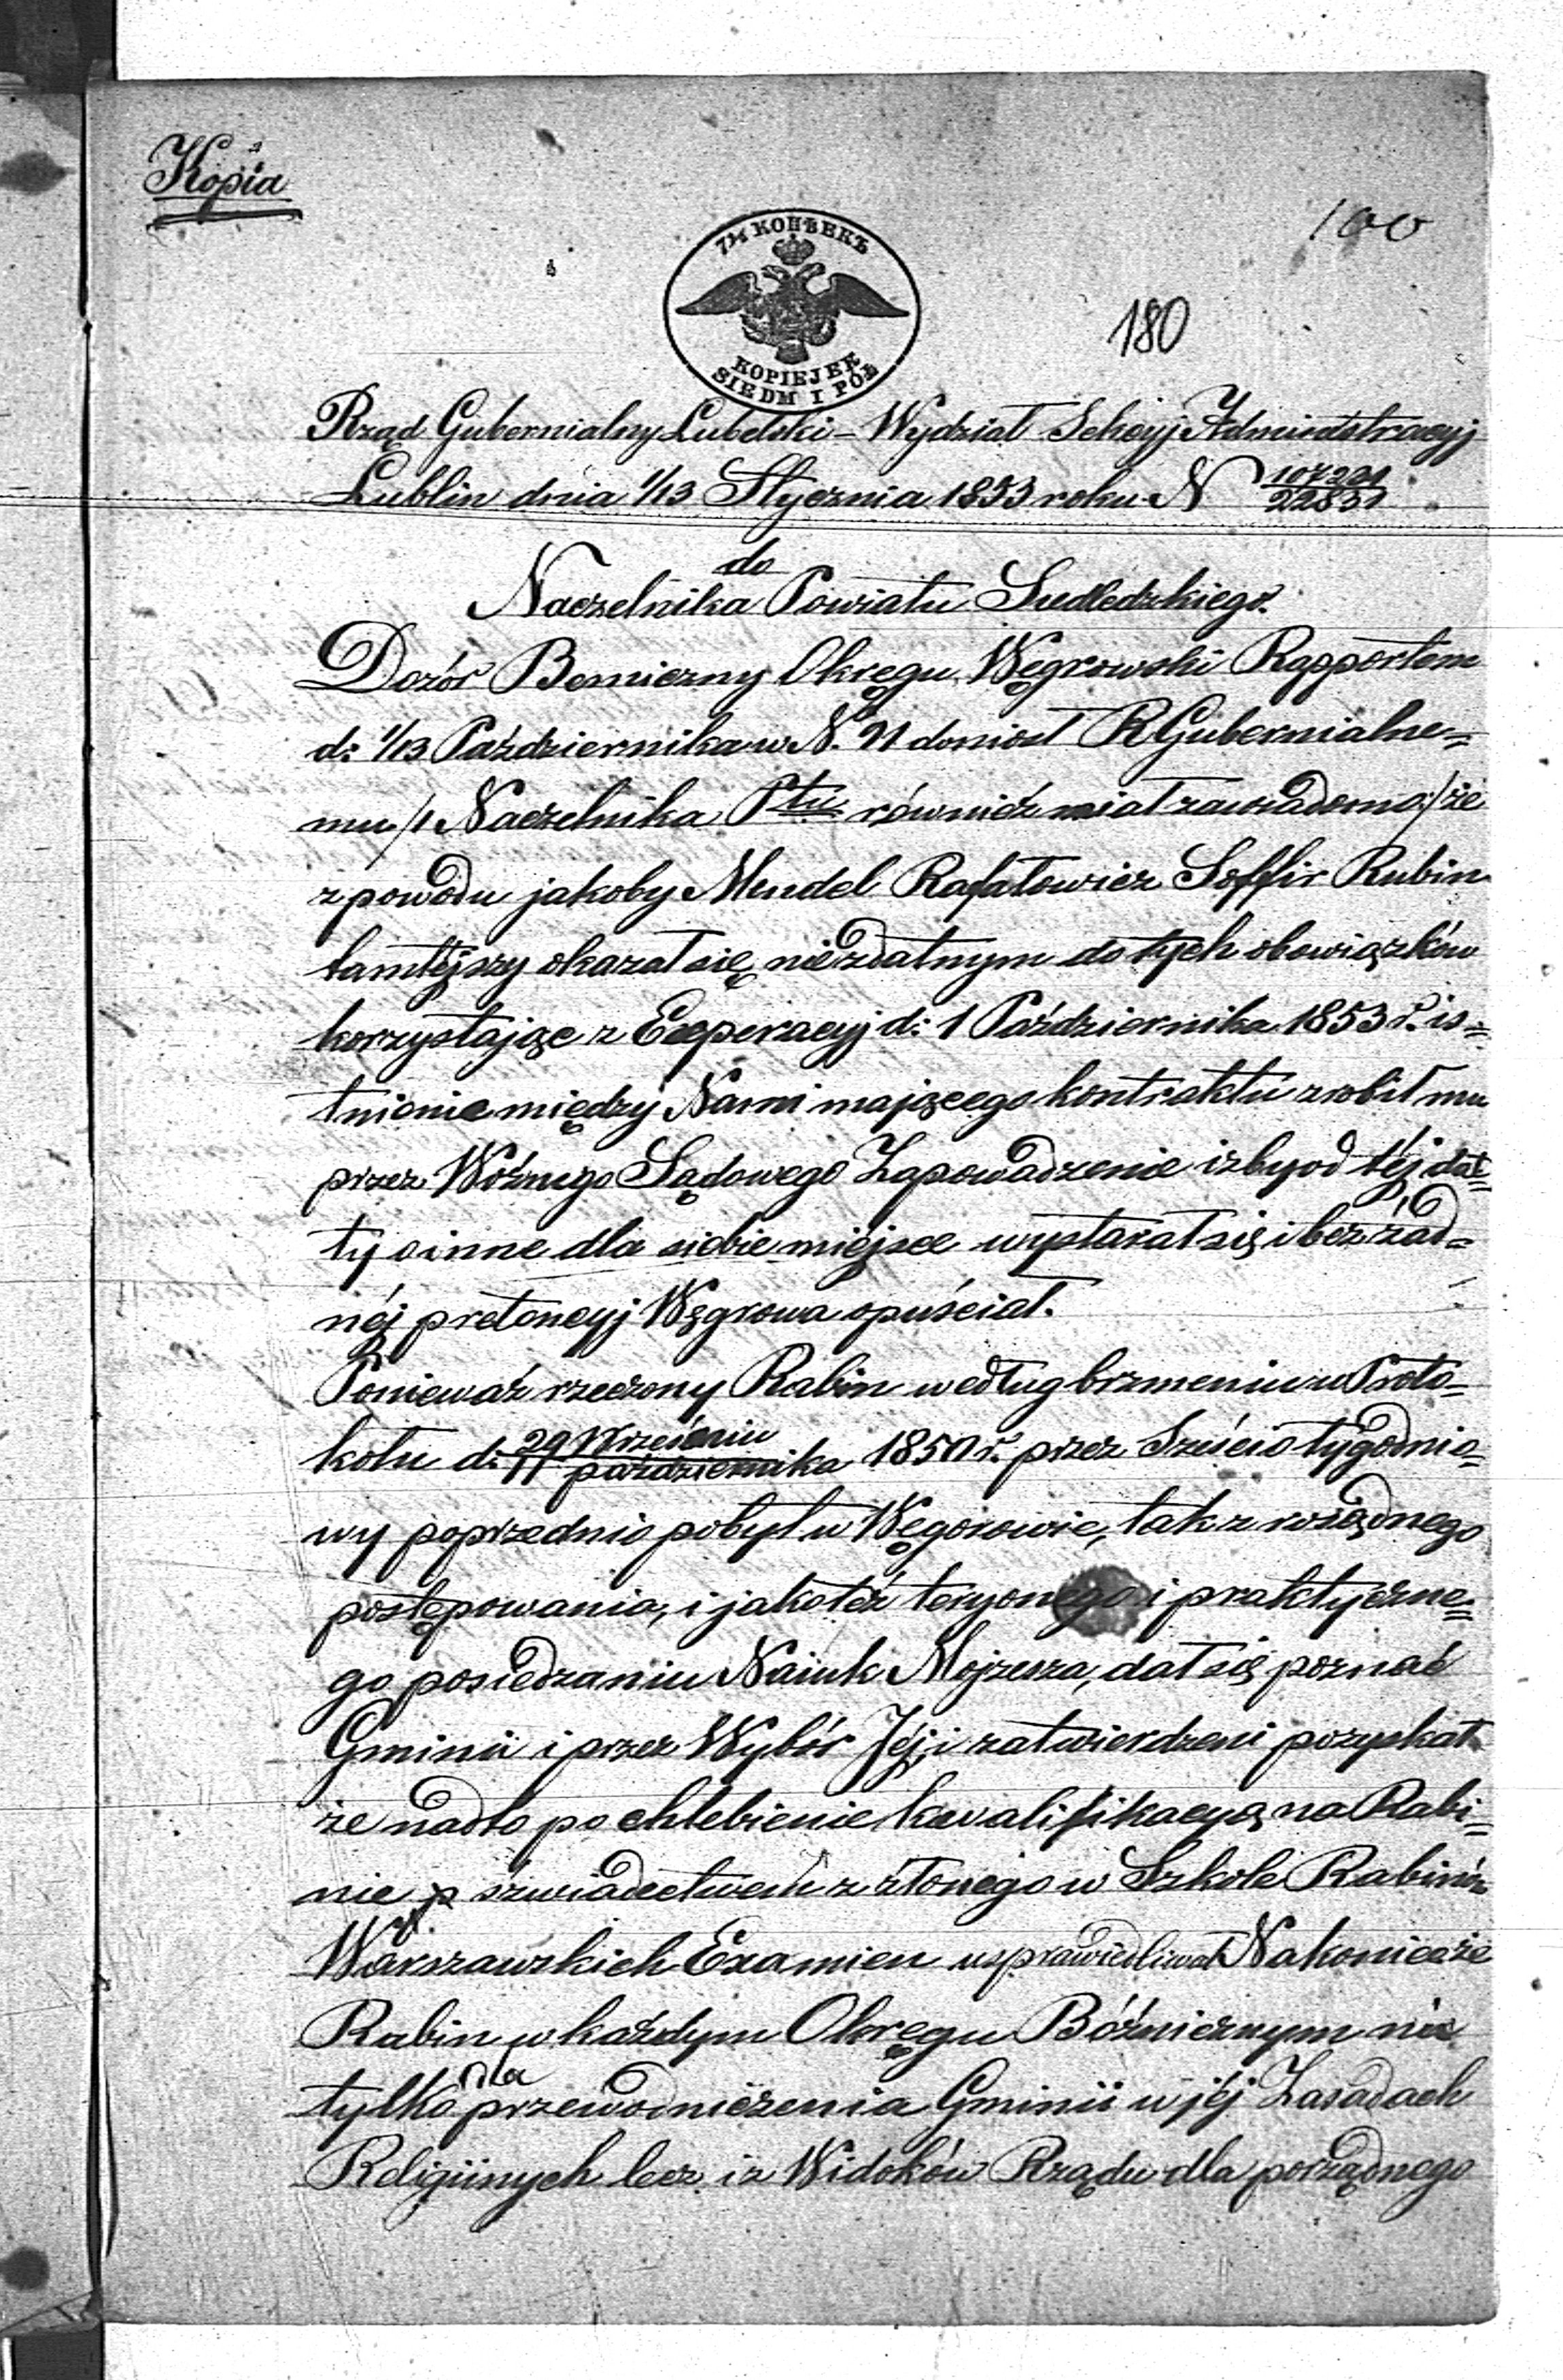 Kopia
100
7½ КОПѢЕКЪ
KOPIEJEK
SIEDM I PÓŁ
180
Rząd Gubernialny Lubelski – Wydział Sekcyj Administracyj
Lublin dnia 1/13 Stycznia 1853 roku N
do
Naczelnika Powiatu Siedledzkiego.
Dozór Bożniczny Okręgu Węgrowski Rapportem
d: 1/13 Października w N. 21 doniosł R Gubernialne=
mu /: Naczelnika Ptu również miał zawiadomo :/ że
z powodu jakoby Mendel Rafałowicz Soffir Rubin
tamtéjszy okazał się niezdatnym do tych obowiązków
korzystając z Experacyj d: 1 Października 1853 r. is=
tnienie między Nami mającego kontraktu zrobił mu
przez Woźnego Sądowego Zapowadzenie izby od téj dat=
ty o inne dla siebie miéjsce wystarał się i bez żad=
néj pretencyj Węgrowa opuściał.
Poniewaź rzeczony Rabin według brzmeniu w Proto=
kołu d: 29 Wrześniu
11 października 1850 r. przez Sześcio tygodnio=
wy poprzednio pobyt w Węgorowie, tak z rosądnego
postępowania, i jakoteź teryonego i praktyczne=
go posiedzaniu Naiuk Mojzesza, dał się poznać
Gminii i przez Wybór Jéj i zatwierdzeni pozyskał
że nadto po chlebienie kwalifikacyą na Rabi=
nie szwiadectwem z złonego w Szkole Rabinów
Warszawskich Examien usprawiedliwał Nakoniec że
Rabin w każdym Okręgu Bóżnicznym nie
tylko dla przewodniczenia Gminii w jéj Zasadach
Religiinych lecz i z Widoków Rządu dla porządnego